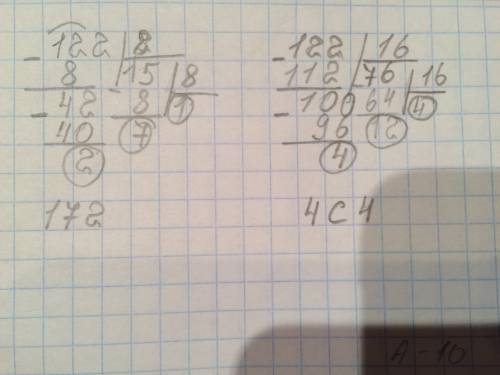 - 122 | 8
8 | 15 | 8
- 42 - 8 | 1
40 7
2
172
- 122 | 16
112 | 76 | 16
- 100 64 | 4
96 12
4
4C4
A-10